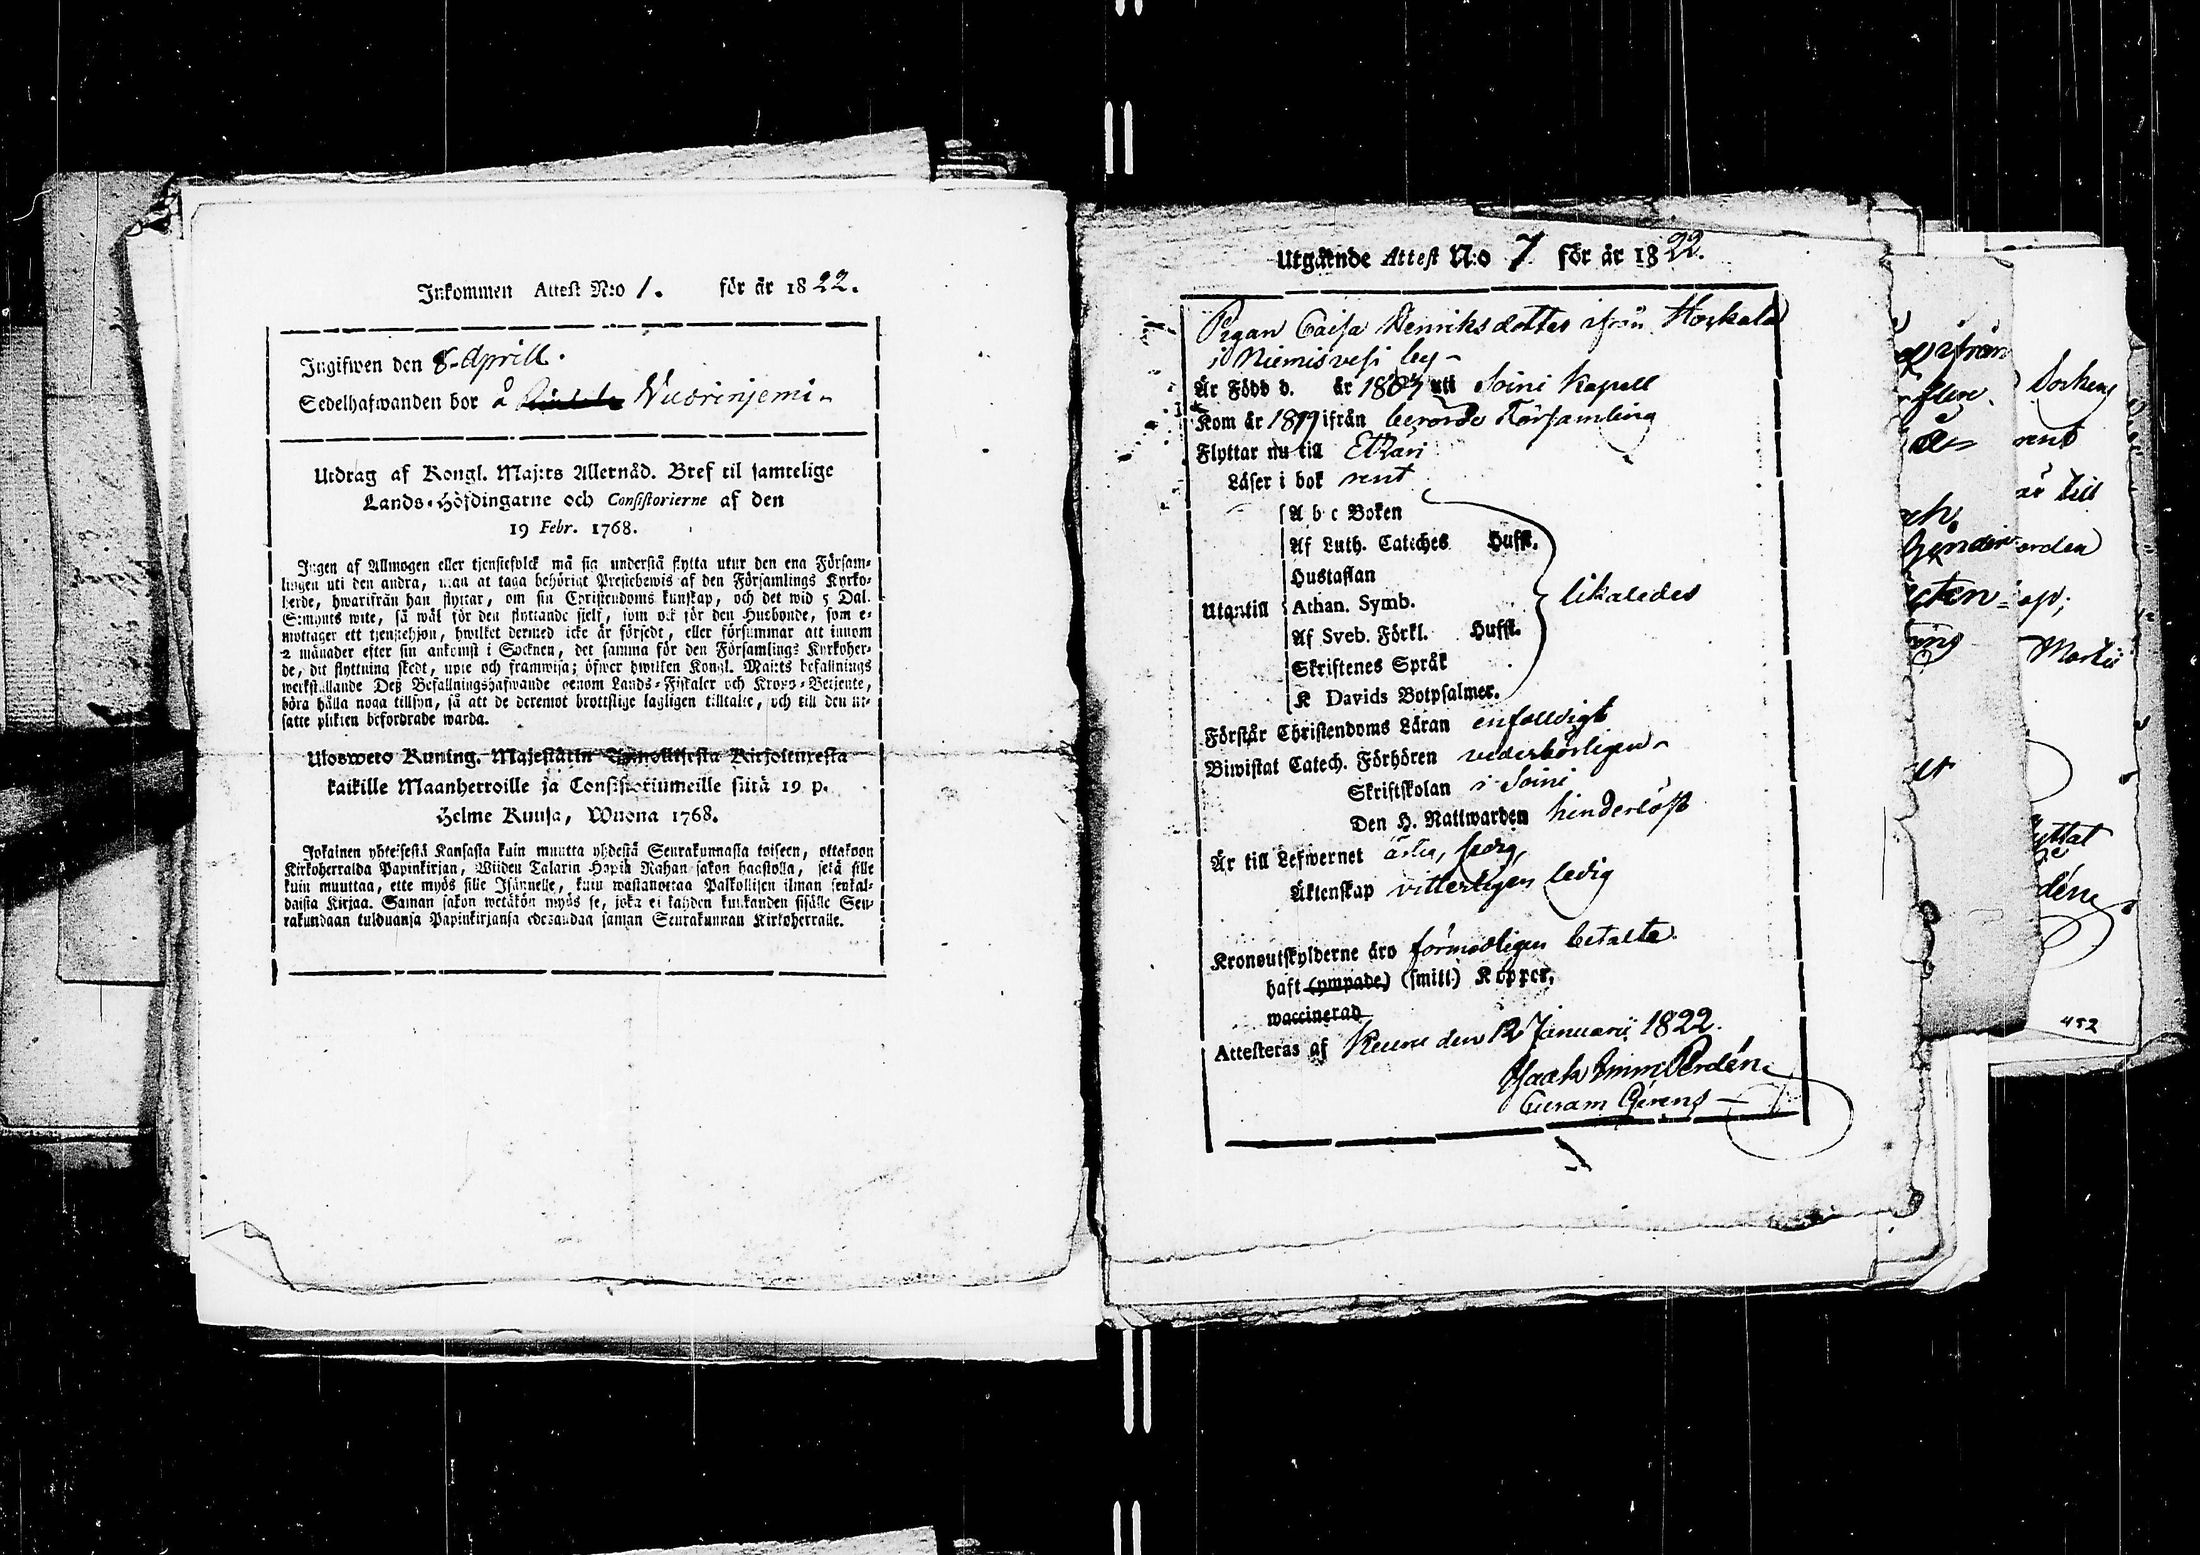 Inkommen Attest N:o 1. för år 1822.
Ingifwen den 8. Aprill.
Sedelhafwanden bor å Wuorinjemi
Utdrag af Kongl. Maj:ts Allernåd. Bref til samtelige
Lands-Höfdingarne och Consistorierne af den
19 Febr. 1768.
Ingen af Allmogen eller tjenstefolck må sig understå flytta utur den ena Försam-
lingen uti den andra, utan at taga behörigt Prestebewis af den Församlings Kyrko-
herde, hwarifrån han flyttar, om sin Christendoms kunskap, och det wid 5 Dal.
S:mynts wite, så wäl för den flyttande sjelf, som ock för den Husbonde, som e-
mottager ett tjenstehjon, hwilket dermed icke är försedt, eller försummar att innom
2 månader efter sin ankomst i Socknen, det samma för den Församlings Kyrkoher-
de, dit flyttning skedt, upte och framwisa; öfwer hwilken Kongl. Maj:ts befallnings
werkställande Deß Befallningshafwande genom Lands-Fiskaler och Krono-Betjente,
böra hålla noga tillsyn, så att de deremot brottslige lagligen tilltalte, och till den ut-
satte plikten befordrade warda.
Uloswето Kuning. Majestätin Armollisesta Kirjotuxesta
kaikille Maanherroille ja Consistoriumeille siitä 19 p.
Helme Kuusa, Wuona 1768.
Jokainen yhteisestä Kansasta kuin muutta yhdestä Seurakunnasta toiseen, ottakoon
Kirkoherralda Papinkirjan, Wiiden Talarin Hopia Rahan sakon haastolla, sekä sille
kuin muuttaa, ette myös sille Isännelle, kuin wastanottaa Palkollisen ilman senkal-
daista Kirjaa. Saman sakon wetäkön myös se, joka ei kahden kuukauden sisälle Seu-
rakundaan tulduansa Papinkirjansa edesandaa saman Seurakunnan Kirkoherralle.
Utgående Attest N:o 7 för år 1822.
Pigan Caisa Henriksdotter ifrån Hoskala
i Niemisvesi by
Är Född d. år 1803 uti Soini Kapell
Kom år 1819 ifrån berörde Församling
Flyttar nu till Etzäri
Läser i bok rent
A b c Boken
Af Luth. Cateches Hufst.
Hustaflan
Utantill Athan. Symb. likaledes
Af Sveb. Förkl. Hufst.
Skriftenes Språk
K Davids Botpsalmer.
Förstår Christendoms Läran enfalldigt
Biwistat Catech. Förhören vederbörligen
Skriftskolan i Soini
Den H. Nattwarden hinderlöst
Är till Lefwernet ärlig,
Äktenskap vitterligen ledig
Kronoutskylderne äro förmodligen betalta.
haft (ympade) (smitt.) Koppor,
waccinerad
Attesteras af Keuru den 12 Januarii 1822.
Isaak Perdén
Curam Gerens
ifrån
Socken
rent
till
Martii
452